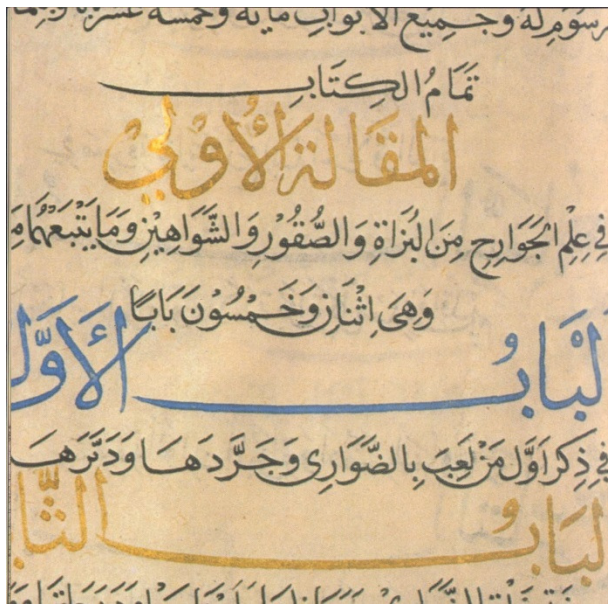 رسوم له وجميع الابواب مايه وخمسه عشره
تَمَامُ الكِتَابِ
المقَالة الأُوْلي
فِي عِلْمِ الجَوَارِحِ مِنَ البُزَاةِ وَالصُّقُوْرِ وَالشَّوَاهِيْنِ وَمَا يَتْبَعُهَا مِ
وَهِيَ اِثْنَانِ وَخَمْسُوْنَ بَابًا
لْبَابُ الأَوَّلُ
فِي ذِكرِ اَوَّل مَنْ لَعِبَ بِالضَّوَارِي وَجَرَّدَهَا وَدَبَّرَهَا
لبَابُ الثَّا